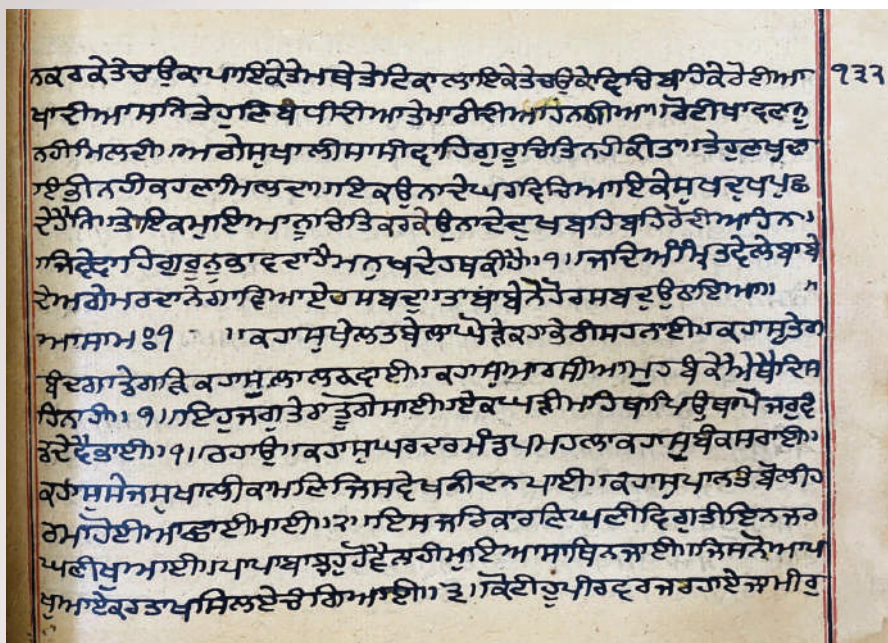 ਨਕਰਕੇਤੇਚਉਕਾਪਾਇਕੇਤੇਮਥੇਤੇਟਿਕਾਲਾਇਕੇਤੇਚਉਕੇਵਿਚਿਬਾਹਿਕੇਰੋਟੀਆ ੧੩੨
ਖਾਦੀਆਸਨਿਤੇਹੁਣਿਬੰਧੀਦੀਆਤੇਮਾਰੀਦੀਆਹਿਨ ਰੋਟੀਖਾਵਣਨੁ
ਨਹੀਮਿਲਦੀ॥ਅਗੇਸੁਖਾਲੀਸਾਸੀਵਾਹਿਗੁਰੂਚਿਤਿਨਹੀਕੀਤਾ॥ਤੇਹੁਣ
ਇਭੀਨਹੀਕਹਣਾਮਿਲਦਾ॥ਇਕਉਨਾਦੇਘਰਵਿਚਿਆਇਕੇਸੁਖਦੁਖਪੁਛ
ਦੇਹੈਨਿ॥ਤੇਇਕਮੁਇਆਨੂਚਿਤਿਕਰਕੇਉਨਾਦੇਦੁਖਬਹਿਬਹਿਰੋਂਦੀਆਹਿਨ॥
॥ਜਿਵੇਵਾਹਿਗੁਰੂਨੁਭਾਵਦਾਹੈਮਨੁਖਦੇਹਥਕੀਹੈ॥੧॥ਜਦਿਅੰਮ੍ਰਿਤਵੇਲੇਬਾਬੇ
ਦੇਅਗੇਮਰਦਾਨੇਗਾਵਿਆਏਹੁਸਬਦੁ॥ਤਾਬਾਬੇਨੇਹੋਰਸਬਦੁਉਠਾਇਆ॥
ਆਸਾਮਃ੧ ॥ਕਹਾਸੁਖੇਲਤਬੇਲਾਘੋੜੇਕਹਾਭੇਰੀਸਹਨਾਈ॥ਕਹਾਸੁਤੇਗ
ਬੰਦਗਾਡੇਰੜਿਕਹਾਸੁਲਾਲਕਵਾਈ॥ਕਹਾਸੁਆਰਸੀਆਮੁਹਬੰਕੇਐਥੈਦਿਸ
ਹਿਨਾਹੀ॥੧॥ਇਹੁਜਗੁਤੇਰਾਤੂਗੋਸਾਈ॥ਏਕਘੜੀਮਹਿਥਾਪਿਉਥਾਪੇਜਰੁਵੰ
ਡਦੇਵੈਭਾਈ॥੧॥ਰਹਾਉ॥ਕਹਾਸੁਘਰਦਰਮੰਡਪਮਹਲਾਕਹਾਸੁਬੰਕਸਰਾਈ॥
ਕਹਾਸੁਸੇਜਸੁਖਾਲੀਕਾਮਣਿਜਿਸਵੇਖਨੀਦਨਪਾਈ॥ਕਹਾਸੁਪਾਨਤੰਬੋਲੀਹ
ਰਮਾਹੋਈਆਛਾਈਮਾਈ॥੨॥ਇਸਜਰਿਕਾਰਣਿਘਣੀਵਿਗੁਤੀਇਨਜਰ
ਘਣੀਖੁਆਈ॥ਪਾਪਾਬਾਝਹੁਹੋਵੈਨਾਹੀਮੁਇਆਸਾਥਿਨਜਾਈ॥ਜਿਸਨੋਆਪਿ
ਖੁਆਏਕਰਤਾਖਸਿਲਏਚੰਗਿਆਈ॥੩॥ਕੋਟੀਹੂਪੀਰਵਰਜਰਹਾਏਜਾਮੀਰੁ